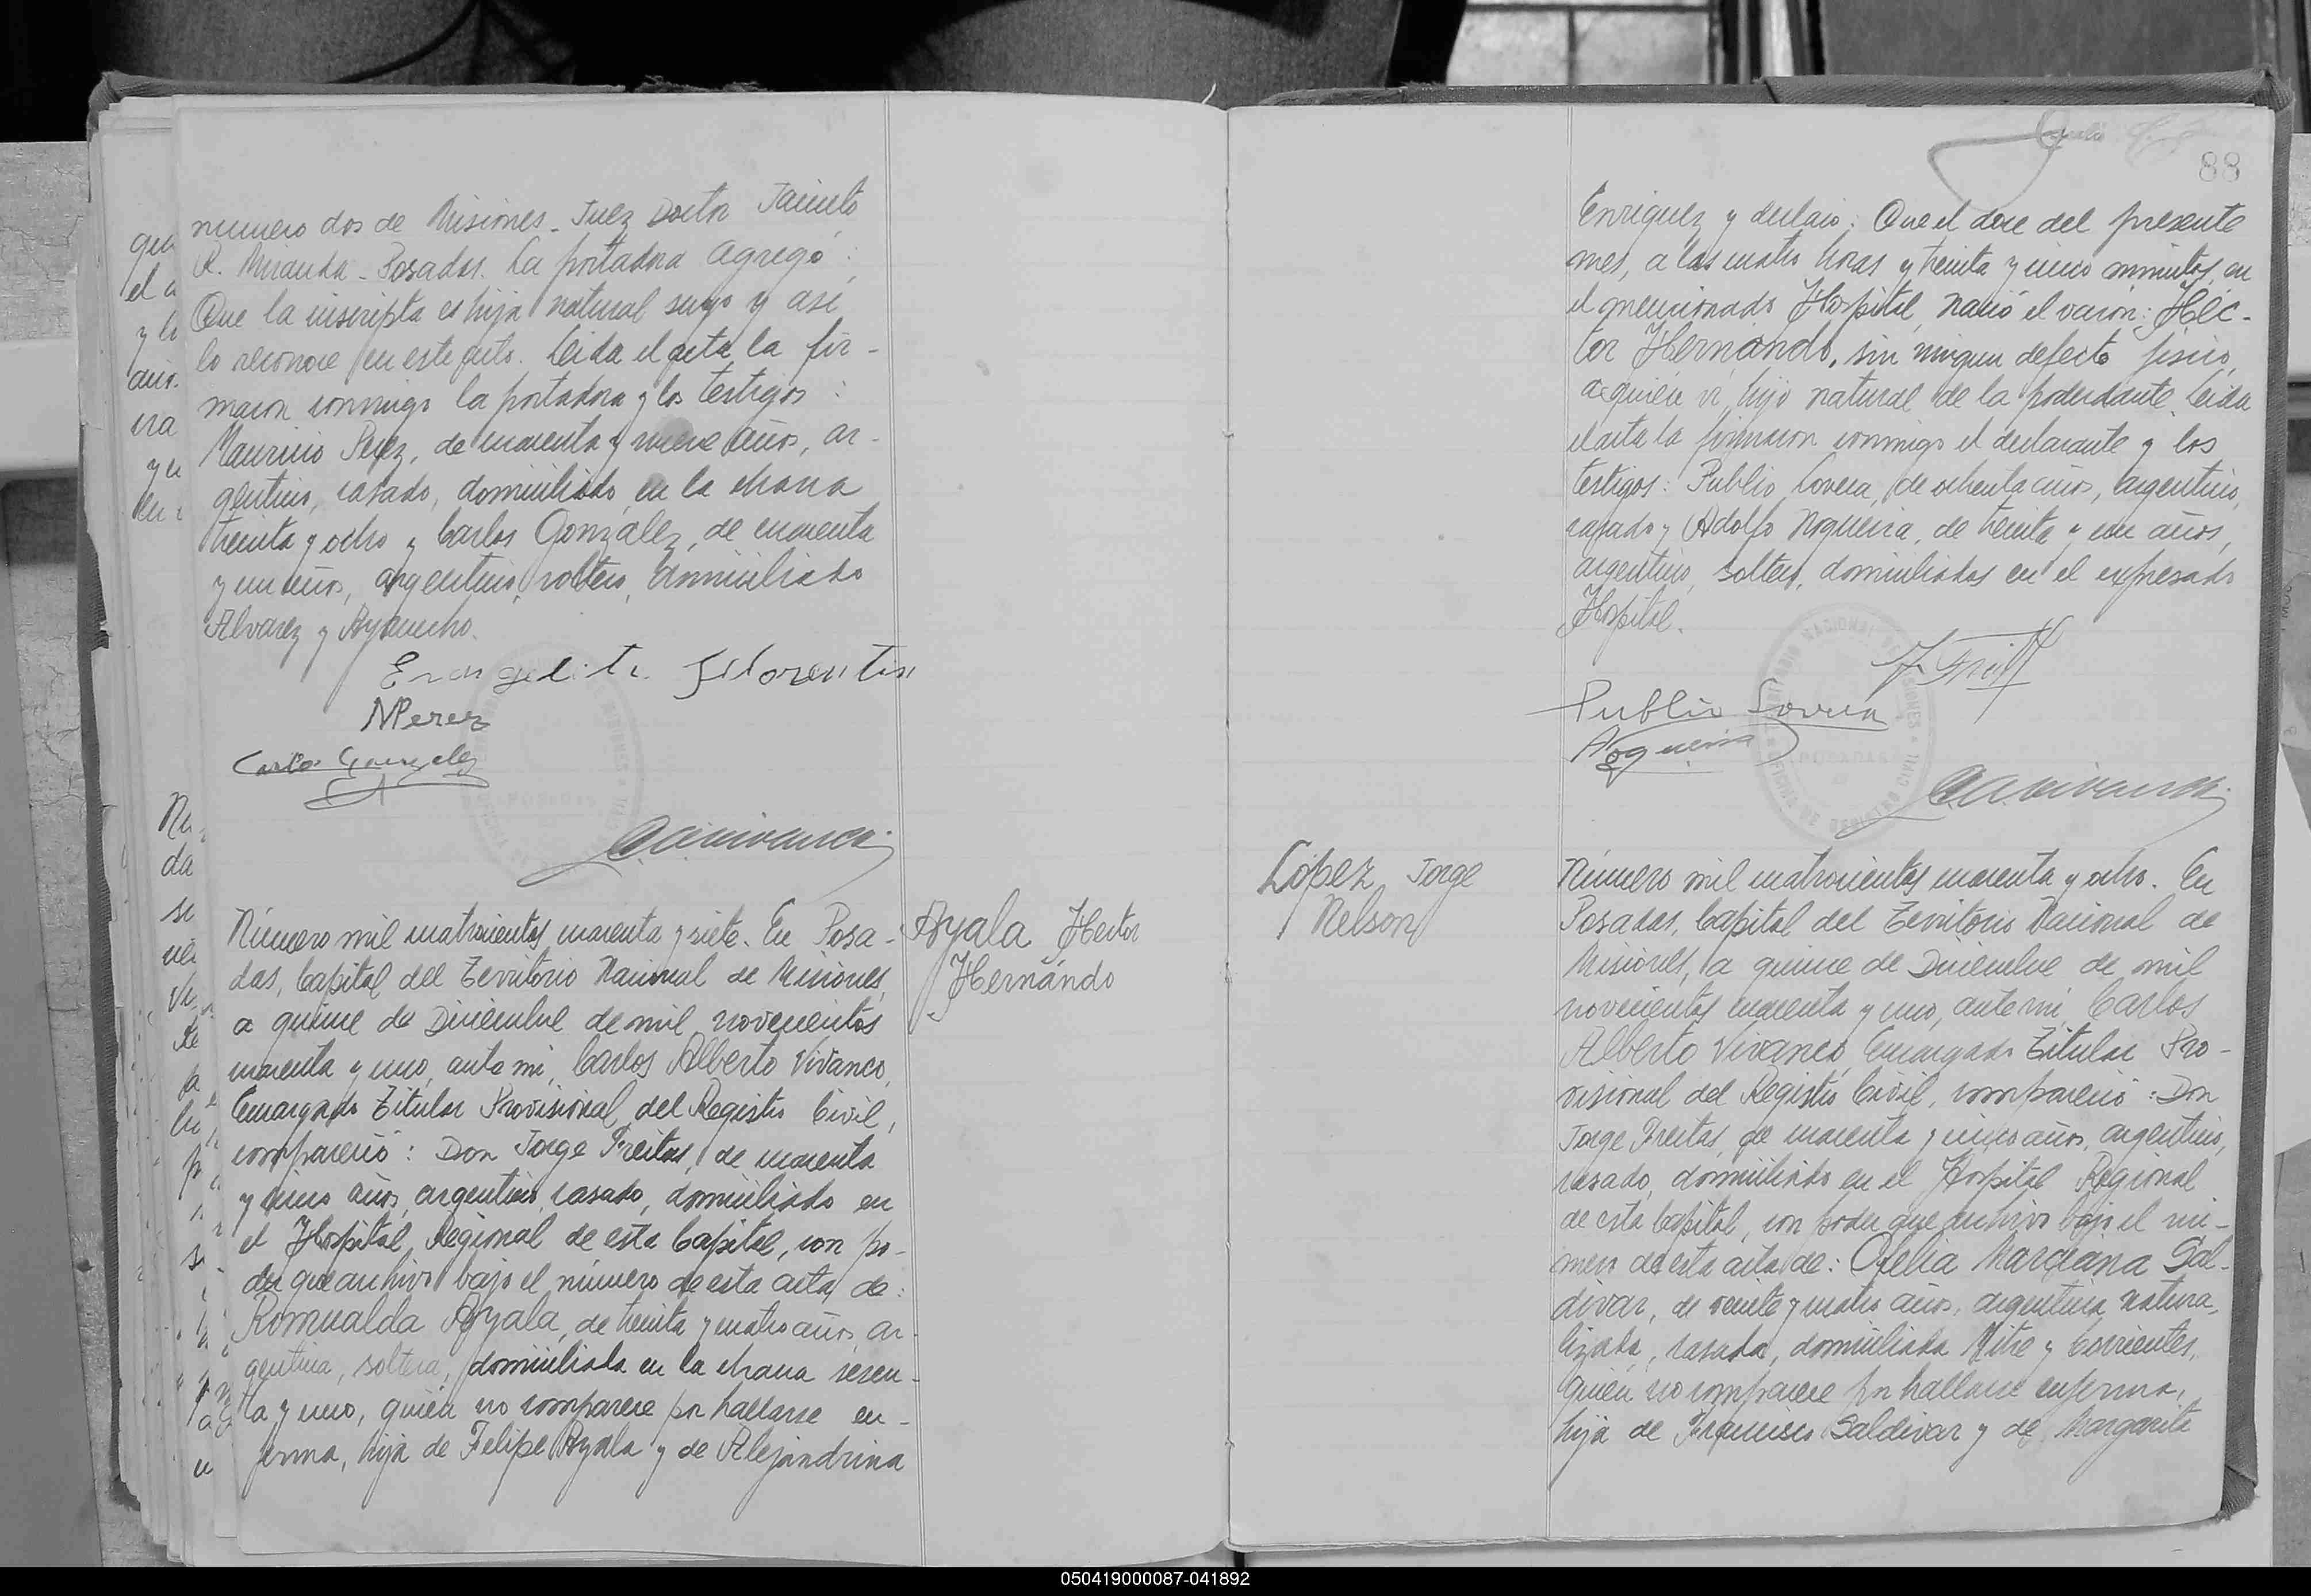 numero dos de Misiones - Juez Doctor Jacinto
R. Miranda - Posadas. La portadora agregó:
Que la inscripta es hija natural suya y así
lo reconoce en este acto. Leida el acta, la fir-
maron conmigo la portadora y los testigos:
Mauricio Perez, de cuarenta y nueve años, ar-
gentino, casado, domiciliado en la chacra
treinta y ocho y Carlos González, de cuarenta
y un años, argentino, soltero, domiciliado
Alvarez y Ayacucho.
Evangelista Florentin
MPerez
Carlos Gonzalez
CAVivanco
Número mil cuatrocientos cuarenta y siete. En Posa-
das, Capital del Territorio Nacional de Misiones,
a quince de Diciembre de mil novecientos
cuarenta y uno, ante mi, Carlos Alberto Vivanco,
Encargado Titular Provisional del Registro Civil,
compareció: Don Jorge Freitas, de cuarenta
y cinco años, argentino, casado, domiciliado en
el Hospital Regional de esta Capital, con po-
der que archivo bajo el número de esta acta de:
Romualda Ayala, de treinta y cuatro años, ar-
gentina, soltera, domiciliada en la chacra sesen-
ta y uno, quién no comparece por hallarse en-
ferma, hija de Felipe Ayala y de Alejandrina
Ayala Hector
Hernándo
88
Enriquez y declaró: Que el doce del presente
mes, a las cuatro horas y treinta y cinco minutos, en
el mencionado Hospital, nació el varón: Héc-
tor Hernándo, sin ningun defecto fisico,
a quién vi, hijo natural de la poderdante. Leida
el acta la firmaron conmigo el declarante y los
testigos: Publio Lovera, de ochenta años, argentino,
casado y Adolfo Nogueira, de treinta y un años,
argentino, soltero, domiciliados en el expresado
Hospital.
J. Freitas
Publio Lovera
Nogueira
POSADAS
CAVivanco
López Jorge
Nelson
Número mil cuatrocientos cuarenta y ocho. En
Posadas, Capital del Territorio Nacional de
Misiones, a quince de Diciembre de mil
novecientos cuarenta y uno, ante mi, Carlos
Alberto Vivanco, Encargado Titular Pro-
visional del Registro Civil, compareció: Don
Jorge Freitas, de cuarenta y cinco años, argentino,
casado, domiciliado en el Hospital Regional
de esta Capital, con poder que archivo bajo el nú-
mero de esta acta de: Ofelia Marciana Sal-
divar, de veinte y cuatro años, argentina natura-
lizada, casada, domiciliada Mitre y Corrientes,
quién no comparece por hallarse enferma,
hija de Francisco Saldivar y de Margarita
050419000087-041892